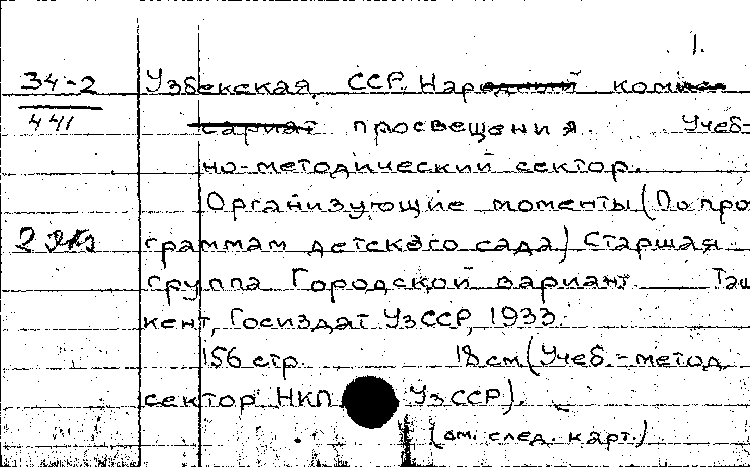 1.
34-2 Узбекская ССР. Народный комисс
441 сариат просвещения. Учеб-
но-методический сектор.
Организующие моменты (По про
2 экз граммам детского сада) Старшая
группа Городской вариант. Таш
кент, Госиздат УзССР, 1933.
156 стр. 18 см (Учеб.-метод
сектор НКП УзССР).
(см. след. карт.)